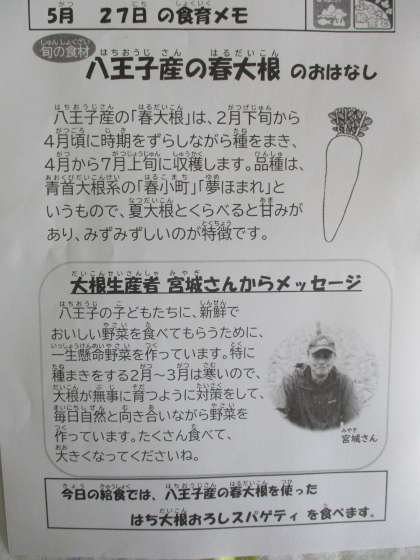 5月　27日 の食育メモ
旬の食材
八王子産の春大根 のおはなし
八王子産の「春大根」は、2月下旬から
4月頃に時期をずらしながら種をまき、
4月から7月上旬に収穫します。品種は、
青首大根系の「春小町」「夢ほまれ」と
いうもので、夏大根とくらべると甘みが
あり、みずみずしいのが特徴です。
大根生産者 宮城さんからメッセージ
八王子の子どもたちに、新鮮で
おいしい野菜を食べてもらうために、
一生懸命野菜を作っています。特に
種まきをする2月～3月は寒いので、
大根が無事に育つように対策をして、
毎日自然と向き合いながら野菜を
作っています。たくさん食べて、
大きくなってくださいね。
宮城さん
今日の給食では、八王子産の春大根を使った
はち大根おろしスパゲティ を食べます。